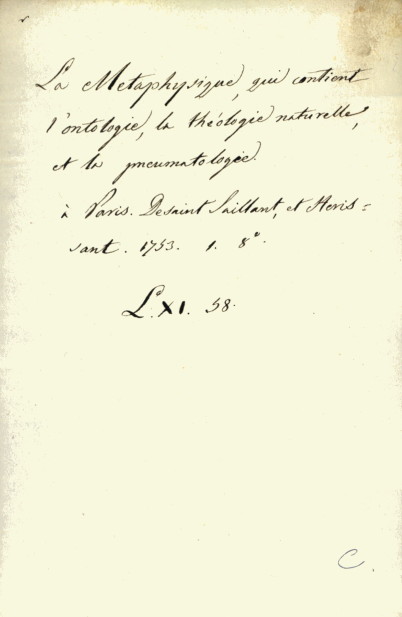 La Metaphysique, qui contient
l'ontologie, la théologie naturelle,
et la pneumatologie.
à Paris. Desaint Saillant, et Heris=
sant. 1753. 1. 8°.
L. XI. 58.
C.